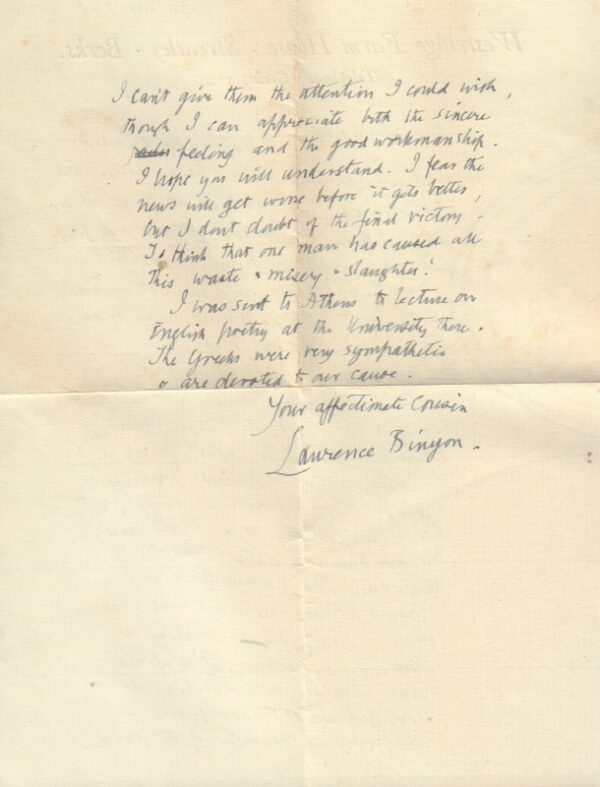 I can't give them the attention I could wish,
though I can appreciate both the sincere
feeling and the good workmanship.
I hope you will understand. I fear the
news will get worse before it gets better,
but I don't doubt of the final victory.
To think that one man has caused all
this waste & misery & slaughter!
I was sent to Athens to lecture on
English poetry at the University there.
The Greeks were very sympathetic
& are devoted to our cause.
Your affectionate Cousin
Laurence Binyon.